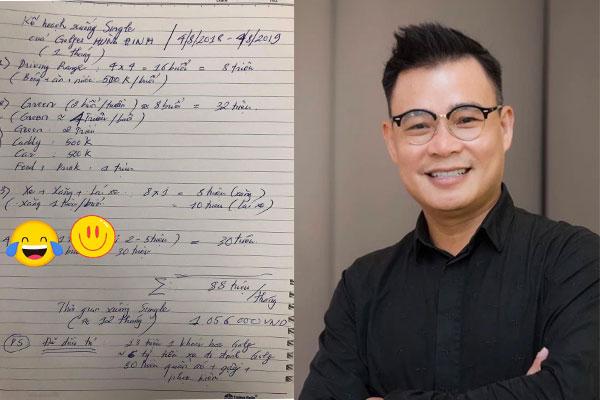 Kế hoạch xuống Single
của Golfer HƯNG ĐINH / 4/8/2018 - 4/8/2019
(1 tháng)
) Driving Range: 4 x 4 = 16 buổi = 8 triệu
(Bóng + ăn + nước 500K/buổi)
Green (2 buổi/tuần) ≈ 8 buổi = 32 triệu.
(Green ≈ 4 triệu/buổi)
Green: 2 triệu
Caddy: 500K
Car: 500K
Food + Drink: 1 triệu
3) Xe + Xăng + Lái xe: 8x1 = 8 triệu (xăng)
(Xăng 1 triệu/buổi = 10 triệu (lái xe)
4 1 2-5 triệu) = 30 triệu.
30 triệu
Σ: 88 triệu/tháng
Thời gian xuống Single
(≈ 12 tháng) 1 056 000 VND
P.S Đã đầu tư: 23 triệu 1 khóa học Golf
≈ 6 tỷ tiền xe đi đánh Golf
50 triệu quần áo + giầy +
phụ kiện